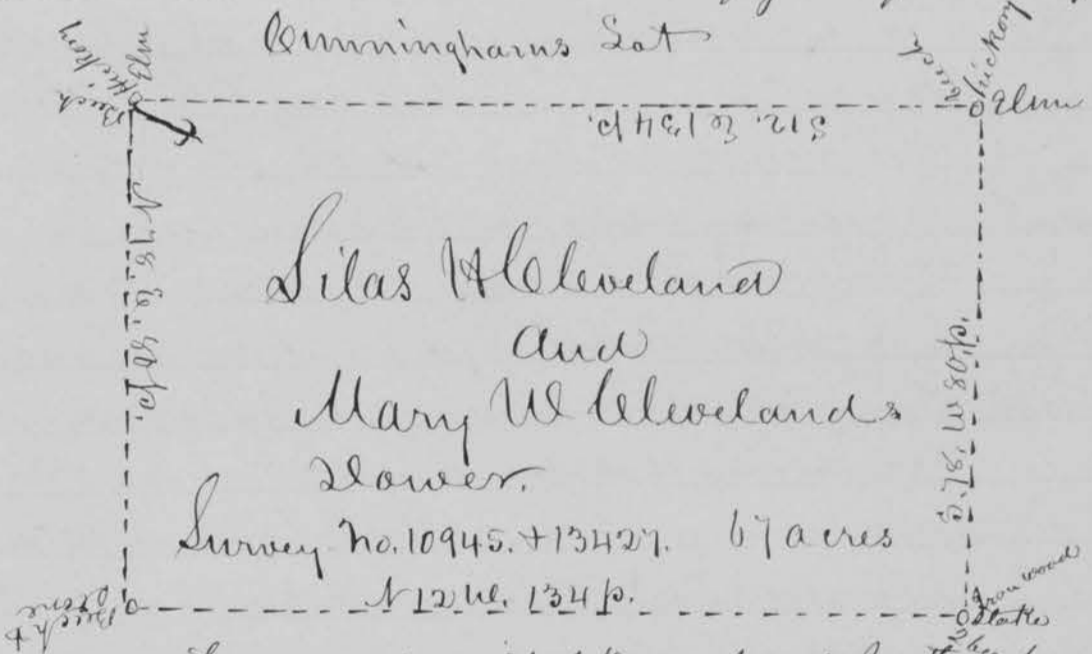 Cunninghams Lot
Beech
Hickory
Elm
Beech
Hickory
Elm
S 12. E 134 p.
N 78. E. 80 p.
Silas H Cleveland
and
Mary W Clevelands
Dower.
Survey No. 10945. + 13427. 67 acres
S. 78. W 80 p.
N 12 W. 134 p.
Beech &
Stone
Ironwood
Stake
2